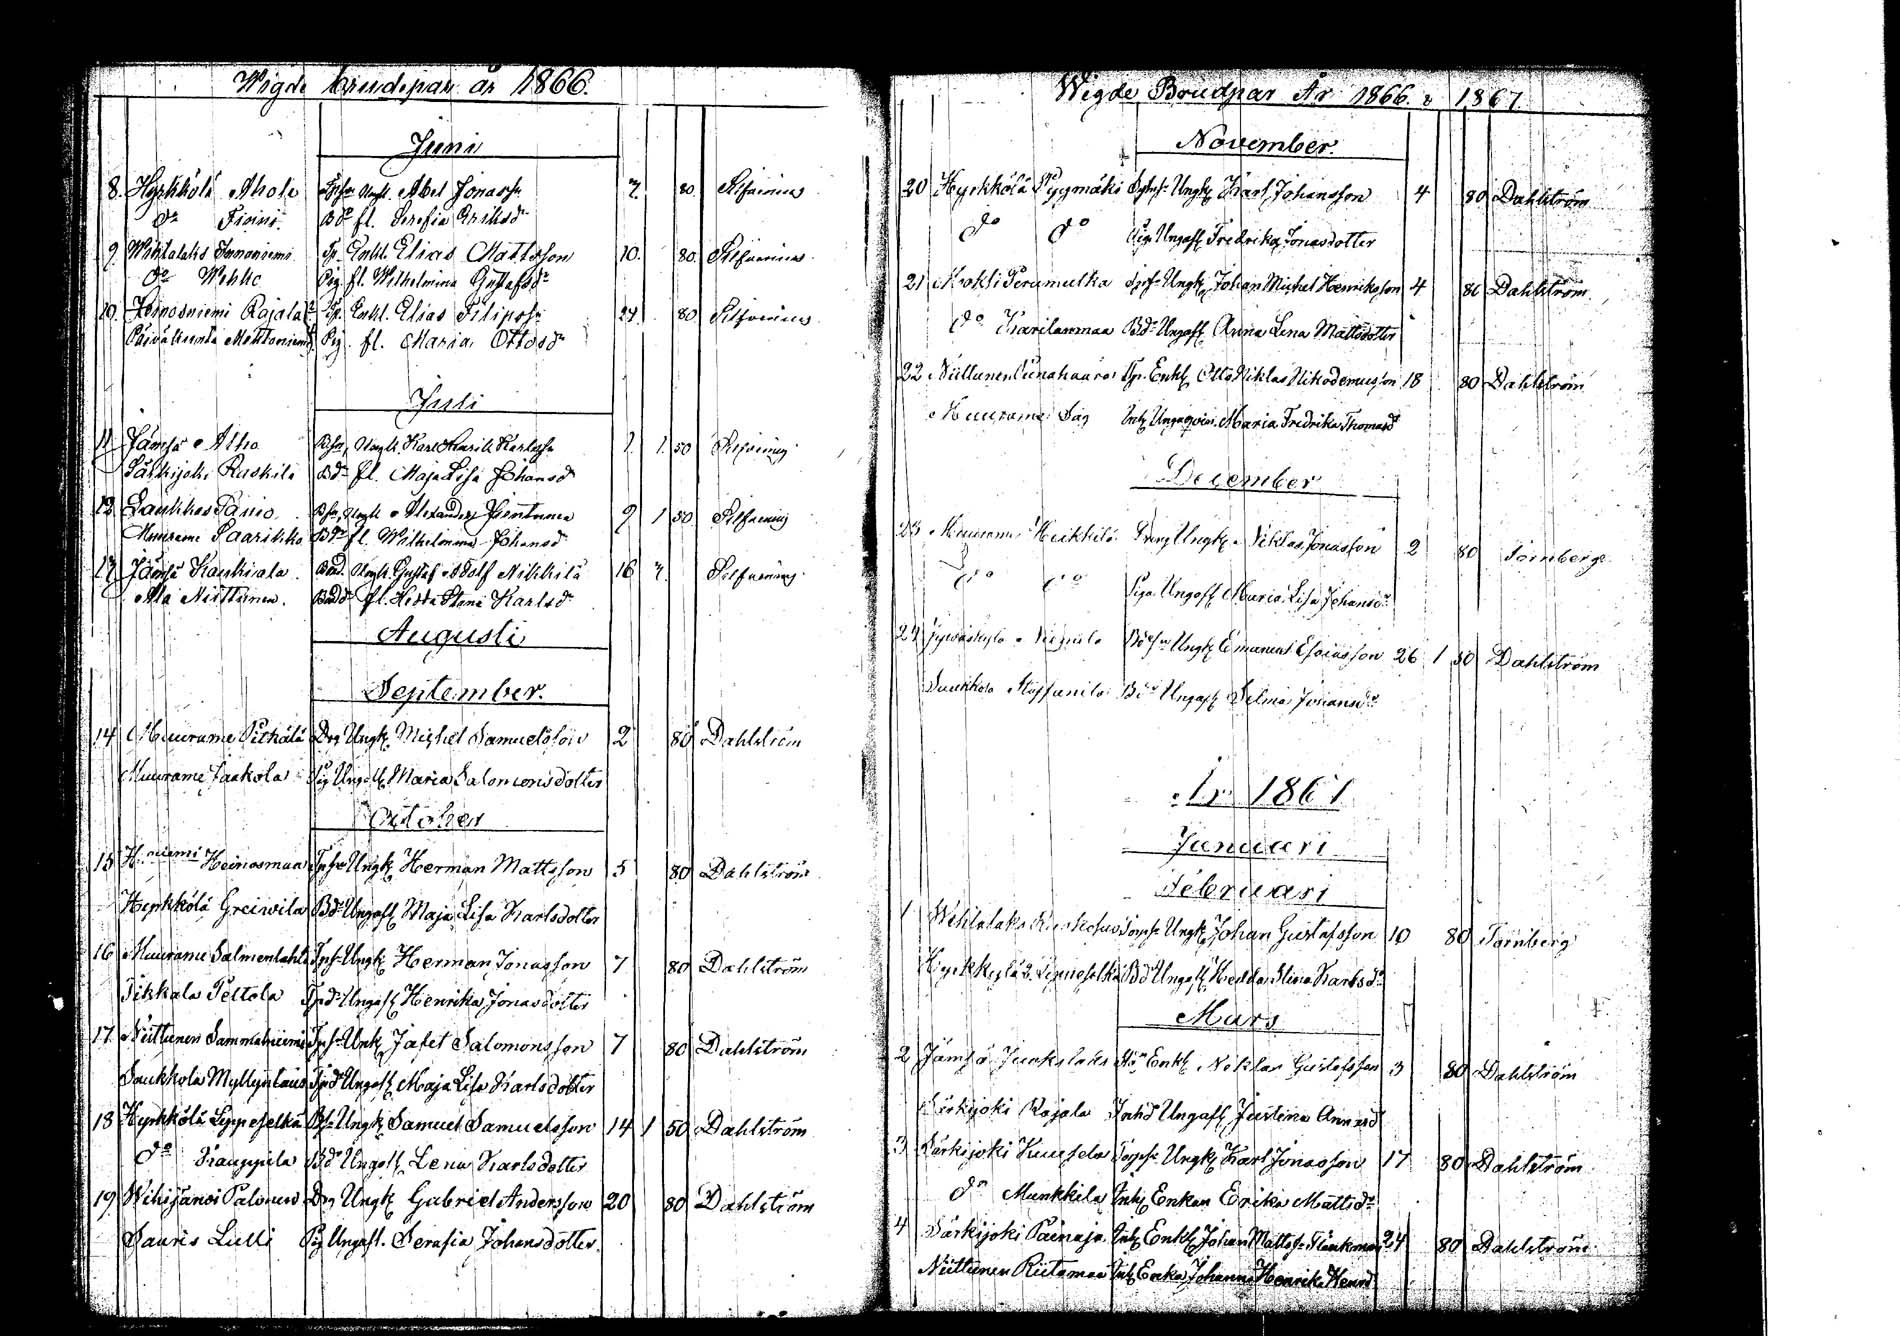 Wigde brudepar år 1866.
Juni
8. Hyrkkölä Ahola Tpsn Ungk. Abel Jonass. 7. 80. Selfvenius
do Bd fl. Serafia Eriksdr
9. Wihtalaks Enkl. Elias Mattsson 10. 80. Selfvenius
do Pig. fl. Wilhelmina Gustafsdr
10. Heinosniemi Rajala Tp. Enkl. Elias Filipss. 24 80 Selfvenius
Päiväkunta Pig. fl. Maria Ottosdr
Juli
11 Jämsä Alho Bsn, Ungk. Karl Henrik Karlsson 1. 1. 50
Särkijoki Ruskila Bdr fl. Maja Lisa Johansd
12. Saukkos Bsn, Ungk Alexander 9 1 50
Muurame Saarikko Bdr fl. Wilhelmina Johansd
13 Jämsä Kaukiala Bond. Ungk. Gustaf Adolf Nikkilä 16 7.
Ala Niittunen. Bondd fl. Hedda Stina Karlsd
Augusti
September.
14 Muurame Pitkälä Drg Ungk. Michel Samuelsson 2 80 Dahlström
Muurame Jaakola Pig Ungafl Maria Salomonsdotter
October
15 H:niemi Heinosmaa Tpsn Ungk Herman Mattsson 5 80 Dahlström
Hyrkkölä Greivila Bdr Ungafl Maja Lisa Karlsdotter
16 Muurame Salmenlahti Tpsn Ungk Herman Jonasson 7 80 Dahlström
Tikkala Peltola Tpdr Ungafl Henrika Jonasdotter
17 Niittunen Sammalniemi Tpsn Unk Jafet Salomonsson 7 80 Dahlström
Saukkola Myllyntaus Tpdr Ungafl Maja Lisa Karlsdotter
18 Hyrkkölä Leppeselkä Bsn Ungk Samuel Samuelsson 14 1 50 Dahlström
do Kauppila Bdr Ungafl Lena Karlsdotter
19 Wihijärvi Palonen Drg Ungk Gabriel Andersson 20 80 Dahlström
Sauris Lulli Pig Ungafl. Serafia Johansdotter.
Wigde Brudpar År 1866. & 1867.
November.
20 Hyrkkölä Pyymäki Tpsn Ungk Karl Johansson 4 80 Dahlström
do do Piga Ungafl Fredrika Jonasdotter
21 Tpsn Ungk Johan Michel Henriksson 4 80 Dahlström
do Karilanmaa Bdr Ungafl Anna Lena Mattsdotter
22 Niittunen Tpr. Enkl Otto Niklas Nikodemusson 18 80 Dahlström
Muurame Såg Inh Maria Fredrika Thomasd
December
23 Muurame Heikkilä Dreng Ungk Niklas Jonasson 2 80 Törnberg
do do Piga Ungafl Maria Lisa Johansdr
24 Jyväskylä Niemelä Bdsn Ungk Emanuel Esaiasson 26 1 50 Dahlström
Saukkola Bdr Ungafl Selma Johansdr
År 1867
Januari
Februari
1 Wihtalaks Torpsn Ungk Johan Gustafsson 10 80 Törnberg
Hyrkkylä Leppeselkä Bd Ungafl Hedda Stina Karlsdr
Mars
2 Jämsä Enkl Niklas Gustafsson 3 80 Dahlström
Särkijoki Rajala Inhd Ungafl Justina Annasd
3 Särkijoki Kuusela Torpsn Ungk Karl Jonasson 17 80 Dahlström
do Munkkila Inh Enkan Erika Mattsdr
4 Särkijoki Painaja Inh Enkl Johan Mattss. Flinkman 24 80 Dahlström
Niittunen Riitamaa Inh Enka Johanna Henrika Henrd